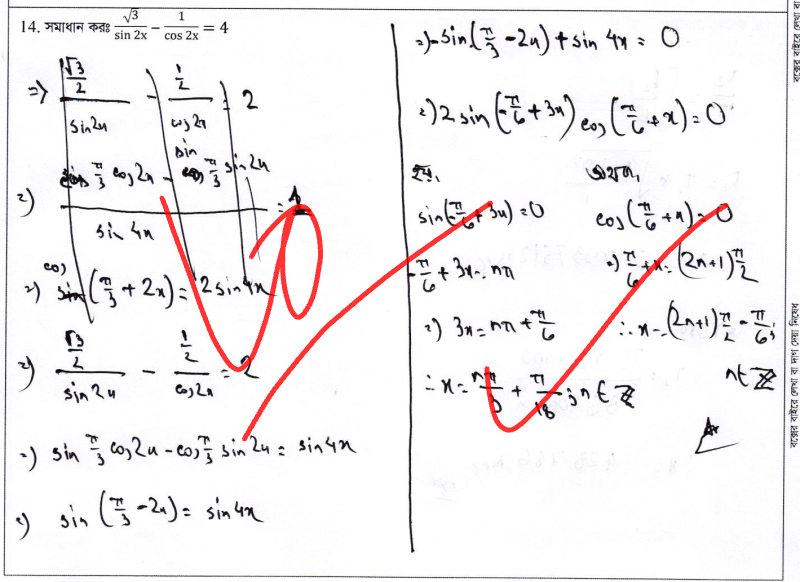 14. সমাধান করঃ √3/sin 2x − 1/cos 2x = 4
=> (√3/2)/sin2x − (1/2)/cos2x = 2
=) (sin π/3 cos2x − cos π/3 sin2x)/sin 4x = 4
=) cos(π/3 + 2x) = 2 sin 4x
=) (√3/2)/sin2x − (1/2)/cos2x = 2
=) sin π/3 cos2x − cos π/3 sin2x = sin4x
=) sin(π/3 − 2x) = sin4x
=) −sin(π/3 − 2x) + sin 4x = 0
=) 2 sin(−π/6 + 3x) cos(π/6 + x) = 0
হয়, অথবা,
sin(−π/6 + 3x) = 0 cos(π/6 + x) = 0
−π/6 + 3x = nπ =) π/6 + x = (2n+1)π/2
=) 3x = nπ + π/6 ∴ x = (2n+1)π/2 − π/6;
∴ x = nπ/3 + π/18 ; n ∈ ℤ n ∈ ℤ
বক্সের বাইরে লেখা বা দাগ দেয়া নিষেধ